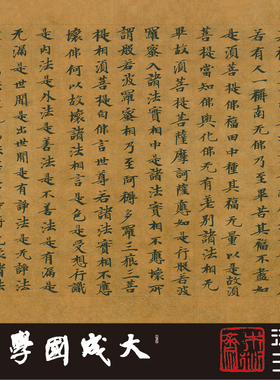 若有人一稱南无佛乃至
菩提佛福田中種其福无量以是故須
菩提當知佛與化佛无有差別諸法相无
異故須菩提菩薩摩訶薩應如是行般若波
羅蜜入諸法實相中是諸法實相不應壞所
謂般若波羅蜜相乃至阿耨多羅三藐三菩
提相須菩提白佛言世尊若諸法實相不應
壞佛何以故壞諸法相言是色是受想行識
是內法是水法是善法是不善法是有漏是
无漏是世間是出世間是有諍法是无諍法
大成國學